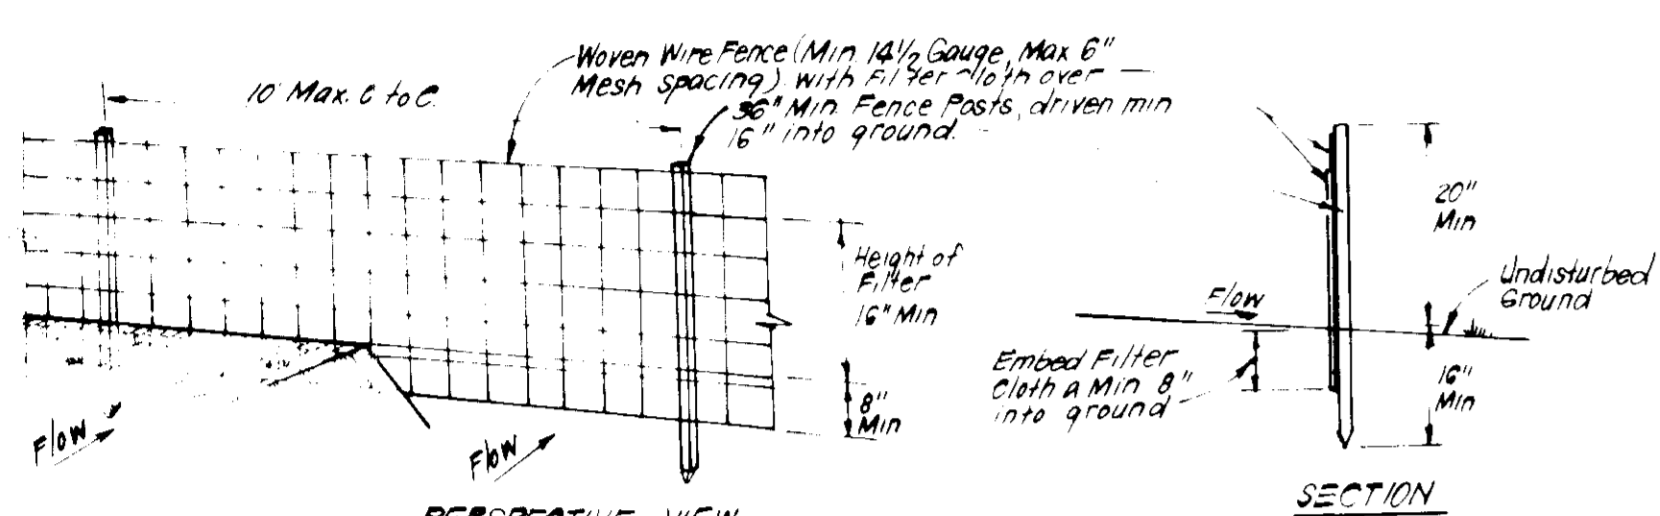 Woven Wire Fence (Min. 14½ Gauge, Max 6"
Mesh spacing) with Filter Cloth over
10' Max. C to C.
36" Min. Fence Posts, driven min
16" into ground.
Height of
Filter
16" Min
8"
Min
Flow
Flow
PERSPECTIVE VIEW
20"
Min
Undisturbed
Ground
Flow
Embed Filter
Cloth a Min 8"
into ground
16"
Min
SECTION